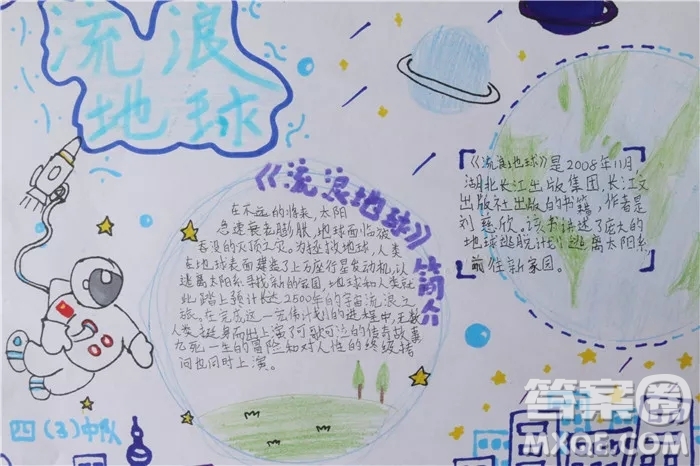 流浪
地球
《流浪地球》简介
在不远的将来，太阳
急速衰老膨胀，地球面临被
吞没的灭顶之灾。为拯救地球，人类
在地球表面建造了上万座行星发动机，以
逃离太阳系寻找新的家园，地球和人类就
此踏上预计长达2500年的宇宙流浪之
旅。在完成这一宏伟计划的进程中，无数
人类挺身而出上演了可歌可泣的传奇故事
九死一生的冒险和对人性的终极拷
问也同时上演。
《流浪地球》是2008年11月，
湖北长江出版集团，长江文
出版社出版的书籍，作者是
刘慈欣。该书讲述了庞大的
地球逃脱计划逃离太阳系
前往新家园。
四(3)中队
答案圈
MXQE.COM